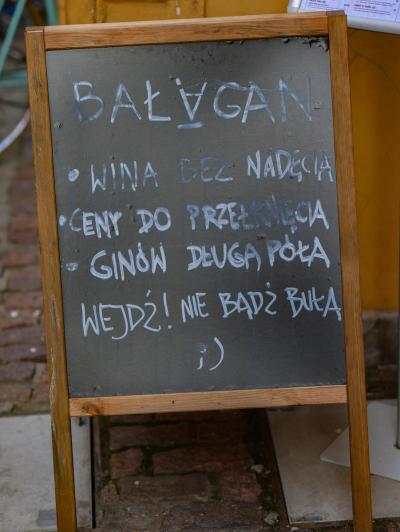 BAŁAGAN
• WINA BEZ NADĘCIA
• CENY DO PRZEŁKNIĘCIA
• GINÓW DŁUGA PÓŁA
WEJDŹ! NIE BĄDŹ BUŁA
;)